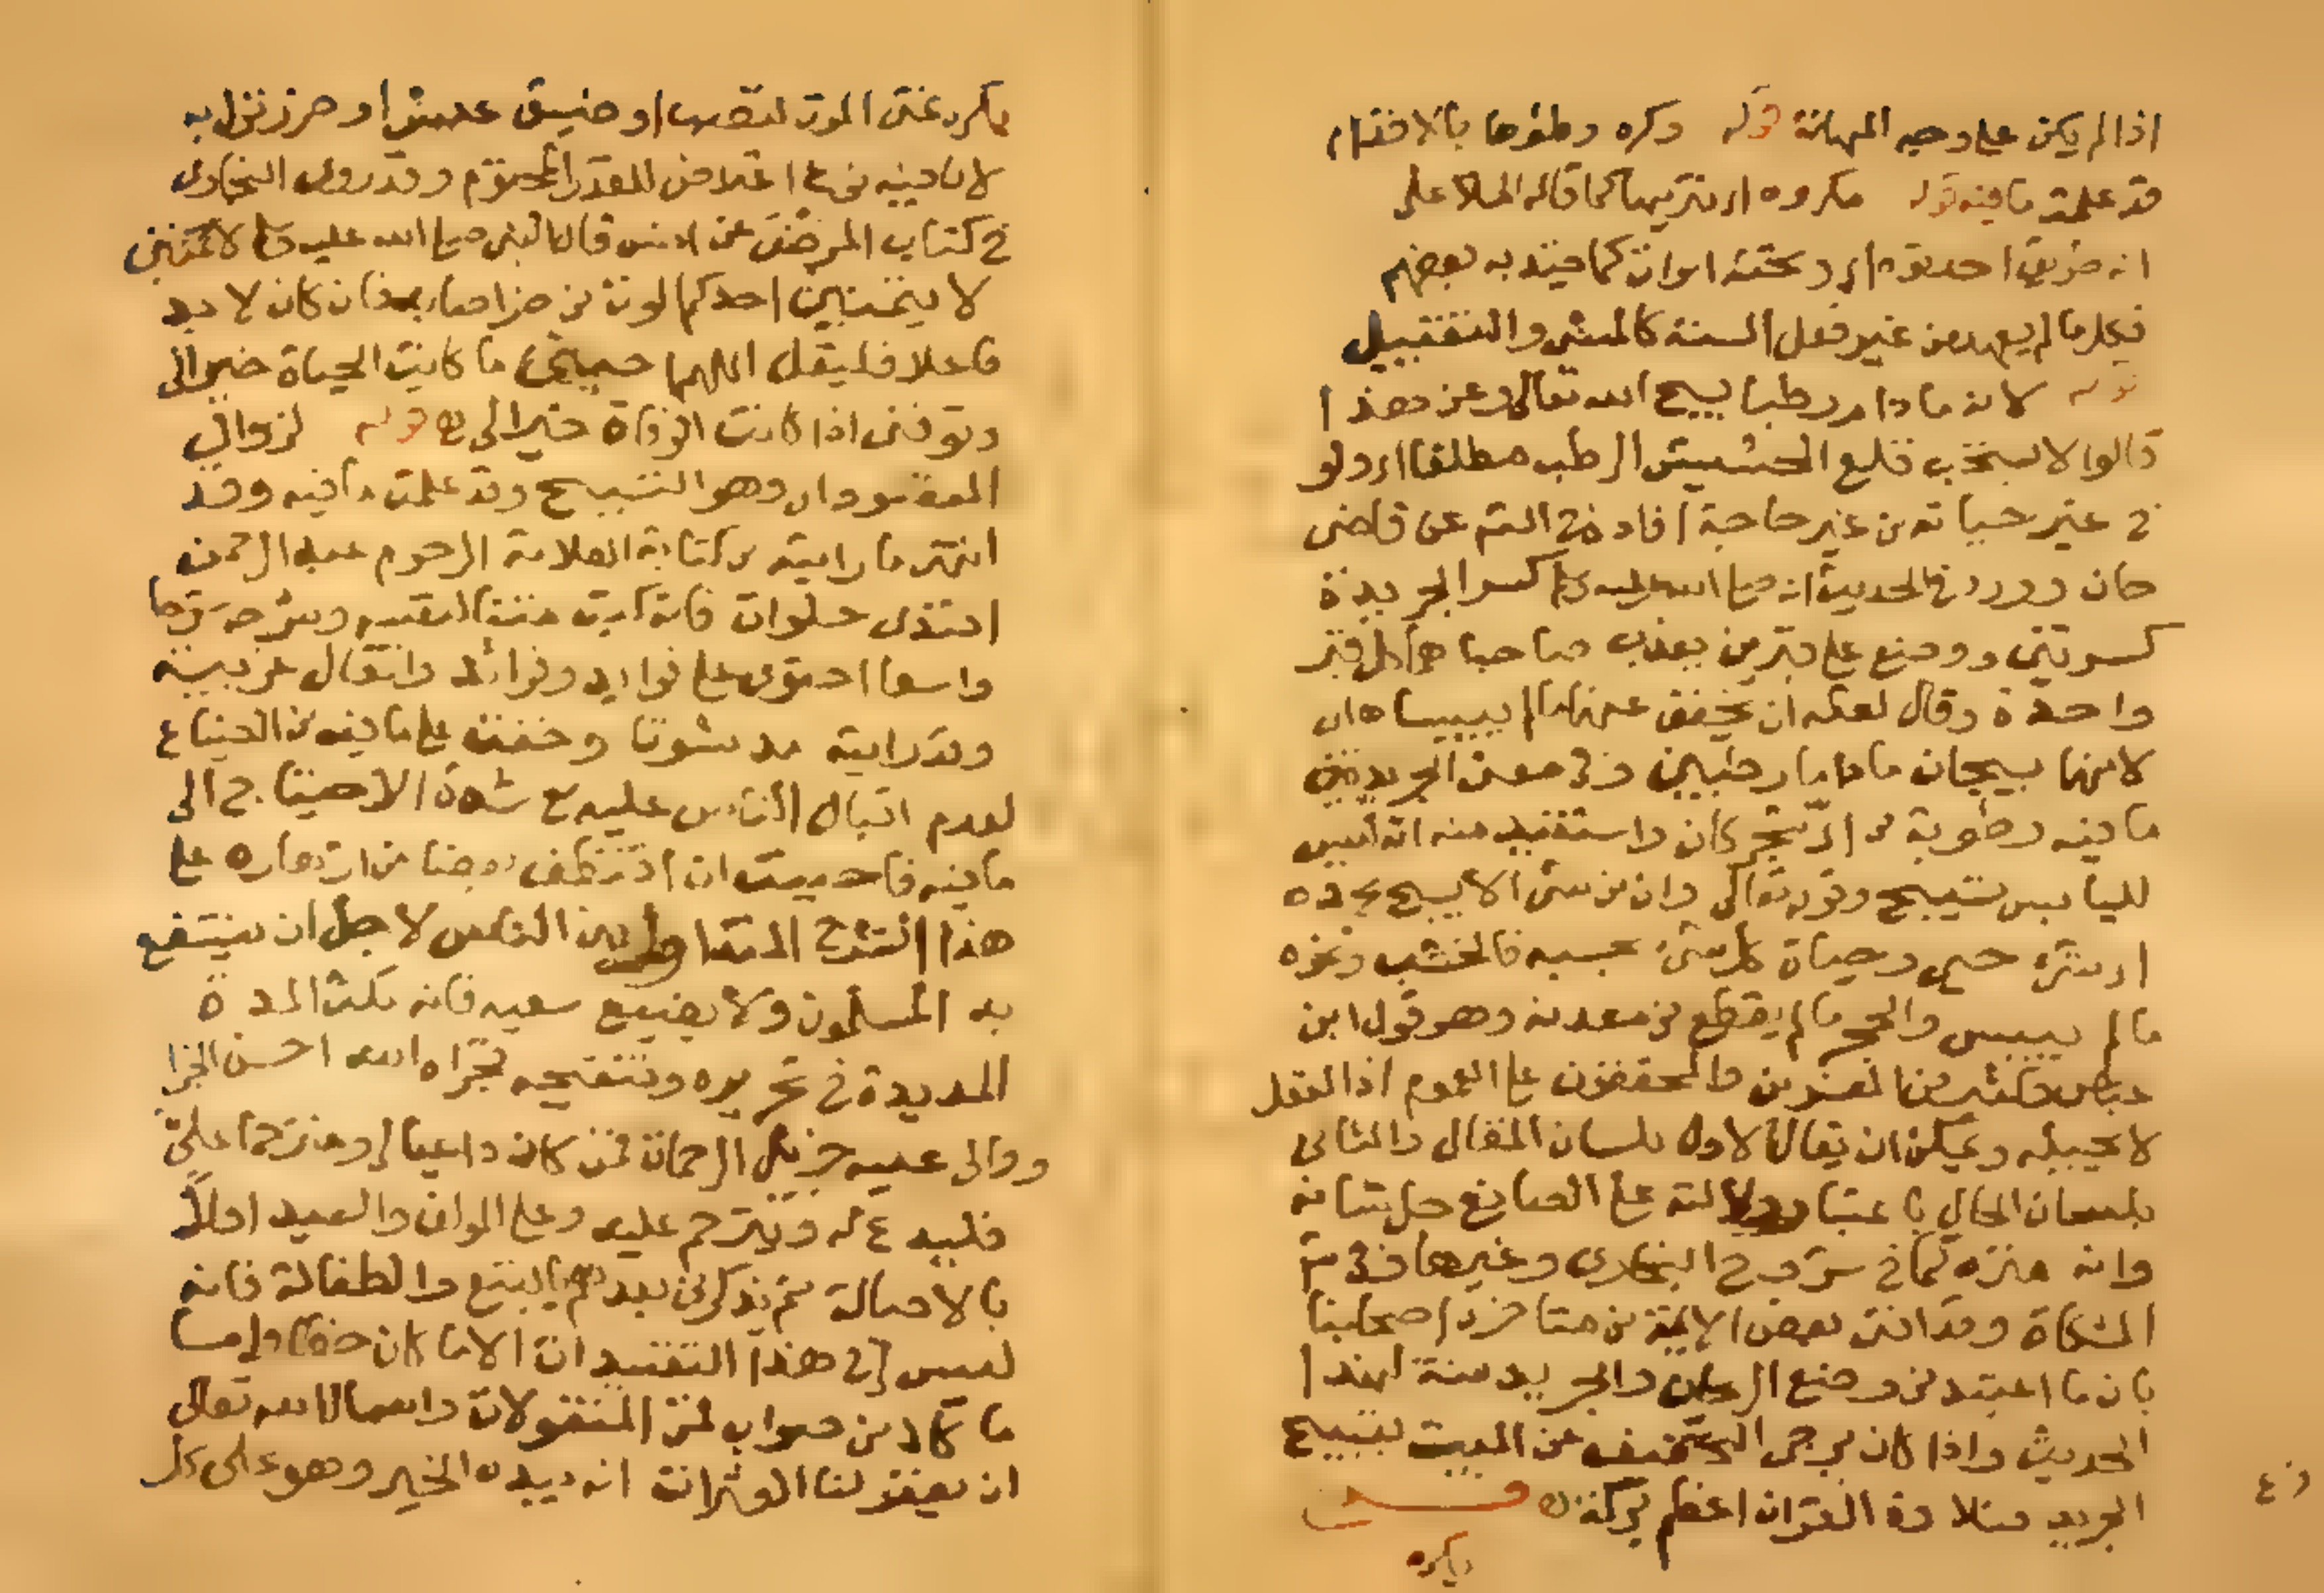 اذا لم يكن على وجه المهانة قوله وكره وطؤها بالاقدام
قد علمت ما فيه قوله مكروه اي تنزيها كما قاله الملا على
انه احد تحته اموات كما قيد به بعضهم
فكل ما لم يعهد من غير فعل السنة كالمشي والتقبيل
قوله لانه ما دام رطبا يسبح الله تعالى وعن هذا
قالوا لا يستحب قلع الحشيش الرطب مطلقا اي ولو
في غير حاجة افاده في عن قاضى
خان وورد في الحديث انه صلى الله عليه وسلم كسر الجريدة
كسرتين ووضع على قبرين يعذب صاحبا هما كل قبر
واحدة وقال لعله ان يخفف عنهما ما لم ييبسا اي
لانهما يسبحان ما داما رطبين وفي معنى الجريدتين
ما فيه رطوبة من اي شجر كان واستفيد منه انه ليس
لليابس تسبيح وقوله تعالى وان من شئ الا يسبح بحمده
اي شئ حي وحياة كل شئ بحسبه فالخشب ونحوه
ما لم ييبس والحجر ما لم يقطع من معدنه وهو قول ابن
عباس وكثير من المفسرين والمحققون على العموم اذ العقل
لا يحيله ويمكن ان يقال الاول بلسان المقال والثانى
بلسان الحال باعتبار دلالته على الصانع جل شانه
وانه منزه كما في شروح البخارى وغيرها وفي شرح
المشكاة وقد افتى بعض الايمة من متاخري اصحابنا
بان ما اعتيد من وضع الريحان والجريد سنة لهذا
الحديث واذا كان يرجى التخفيف عن الميت بتسبيح
الجريد فتلاوة القران اعظم بركة
يكره
يكره تمنى الموت لغضب او ضيق عيش او ضرر نزل به
لان فيه نوع اعتراض المقدر المحتوم وقد روى البخارى
في كتاب المرضى عن انس قال النبي صلى الله عليه وسلم لا يتمنين
لا يتمنين احدكم الموت من ضر اصابه فان كان لا بد
فاعلا فليقل اللهم احيينى ما كانت الحياة خيرا لى
وتوفنى اذا كانت الوفاة خيرا لى قوله لزوال
المقصود اي وهو التسبيح وقد علمت ما فيه وقد
انتهى ما رايته من كتابة العلامة المرحوم عبد الرحمن
افندى خلوات
واسعا احتوى على فوايد وفرائد وانتقال غريبة
وقد رايته وخفت على ما فيه من الضياع
لعدم اقبال الناس عليه مع شدة الاحتياج الى
ما فيه فاحببت ان اقتطف روضا من ازهاره على
هذا الشرح المتداول بين الناس لاجل ان ينتفع
به المسلمون ولا يضيع سعيه فانه مكث المدة
المديدة في تحريره وتنقيحه فجزاه الله احسن الجزا
ووالى عليه جزيل الرحمات فمن كان داعيا او مترحما على
فليدع له ويترحم عليه وعلى الموالف والعبيد اولا
بالاصالة ثم يذكرني بعدهم بالتبع والطفالة فانه
ليس لي في هذا التقييد ان الا ما كان خطا واما
ما كان من صواب فمن المنقولات واسال الله تعالى
ان يغفر لنا العثرات انه بيده الخير وهو على كل